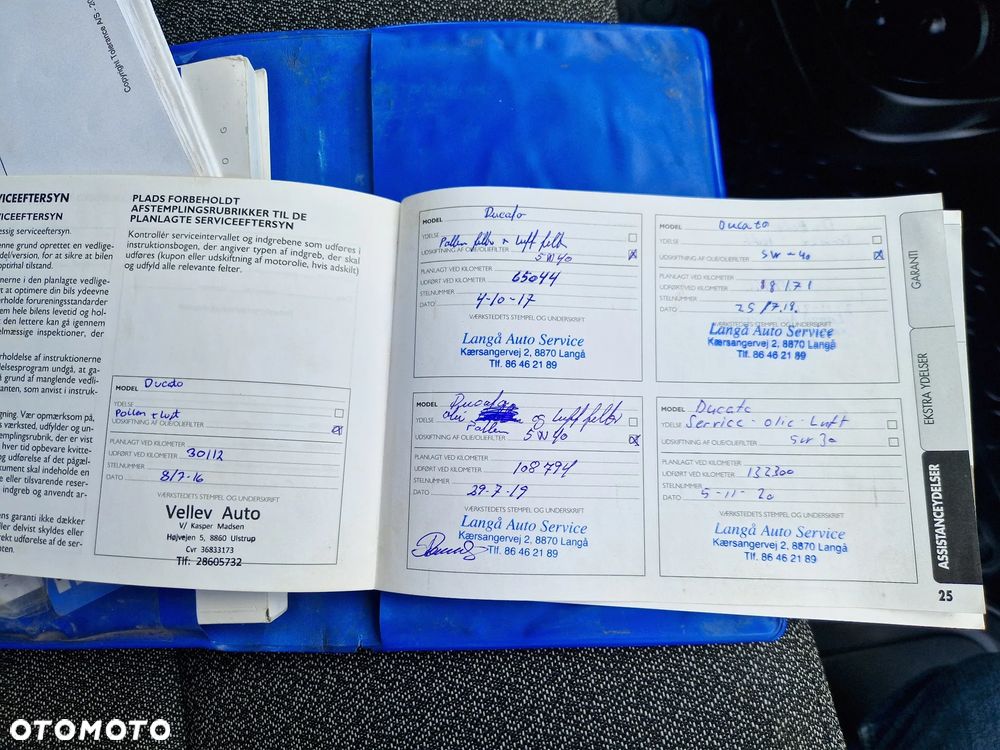 Copyright Tolerance A/S - 20
O G
VICEEFTERSYN
VICEEFTERSYN
essig serviceeftersyn.
enne grund oprettet en vedlige-
del/version, for at sikre at bilen
optimal tilstand.
nerne i den planlagte vedlige-
t at optimere din bils ydeevne
erholde forureningsstandarder
em hele bilens levetid og hol-
den lettere kan gå igennem
elmæssige inspektioner, der
rholdelse af instruktionerne
elsesprogram undgå, at ga-
grund af manglende vedli-
anten, som anvist i instruk-
gning. Vær opmærksom på,
s værksted, udfylder og un-
templingsrubrik, der er vist
hver tid opbevare kvitte-
g udførelse af det pågæl-
kument skal indeholde en
e eller tilsvarende reser-
indgreb og anvendt ar-
ens garanti ikke dækker
ller delvist skyldes eller
rekt udførelse af de ser-
oten.
PLADS FORBEHOLDT
AFSTEMPLINGSRUBRIKKER TIL DE
PLANLAGTE SERVICEEFTERSYN
Kontrollér serviceintervallet og indgrebene som udføres i
instruktionsbogen, der angiver typen af indgreb, der skal
udføres (kupon eller udskiftning af motorolie, hvis adskilt)
og udfyld alle relevante felter.
MODEL Ducato
YDELSE
Pollen + luft
UDSKIFTNING AF OLIE/OLIEFILTER
PLANLAGT VED KILOMETER
UDFØRT VED KILOMETER 30112
STELNUMMER
DATO 8/7-16
VÆRKSTEDETS STEMPEL OG UNDERSKRIFT
Vellev Auto
V/ Kasper Madsen
Højvejen 5, 8860 Ulstrup
Cvr 36833173
Tlf: 28605732
MODEL Ducato
YDELSE
Pollen filter + luft filter
UDSKIFTNING AF OLIE/OLIEFILTER 5W40
PLANLAGT VED KILOMETER
UDFØRT VED KILOMETER 65044
STELNUMMER
DATO 4-10-17
VÆRKSTEDETS STEMPEL OG UNDERSKRIFT
Langå Auto Service
Kærsangervej 2, 8870 Langå
Tlf. 86 46 21 89
MODEL Ducato
YDELSE olie og luft filter
Pollen
UDSKIFTNING AF OLIE/OLIEFILTER 5W40
PLANLAGT VED KILOMETER
UDFØRT VED KILOMETER 108794
STELNUMMER
DATO 29-7-19
VÆRKSTEDETS STEMPEL OG UNDERSKRIFT
Langå Auto Service
Kærsangervej 2, 8870 Langå
Tlf. 86 46 21 89
MODEL Ducato
YDELSE
UDSKIFTNING AF OLIE/OLIEFILTER 5W-40
PLANLAGT VED KILOMETER
UDFØRT VED KILOMETER 88171
STELNUMMER
DATO 25/7.18.
VÆRKSTEDETS STEMPEL OG UNDERSKRIFT
Langå Auto Service
Kærsangervej 2, 8870 Langå
Tlf. 86 46 21 89
MODEL Ducato
YDELSE Service - olie - Luft
UDSKIFTNING AF OLIE/OLIEFILTER 5W30
PLANLAGT VED KILOMETER
UDFØRT VED KILOMETER 132300
STELNUMMER
DATO 5-11-20
VÆRKSTEDETS STEMPEL OG UNDERSKRIFT
Langå Auto Service
Kærsangervej 2, 8870 Langå
Tlf. 86 46 21 89
GARANTI
EKSTRA YDELSER
ASSISTANCEYDELSER
25
OTOMOTO